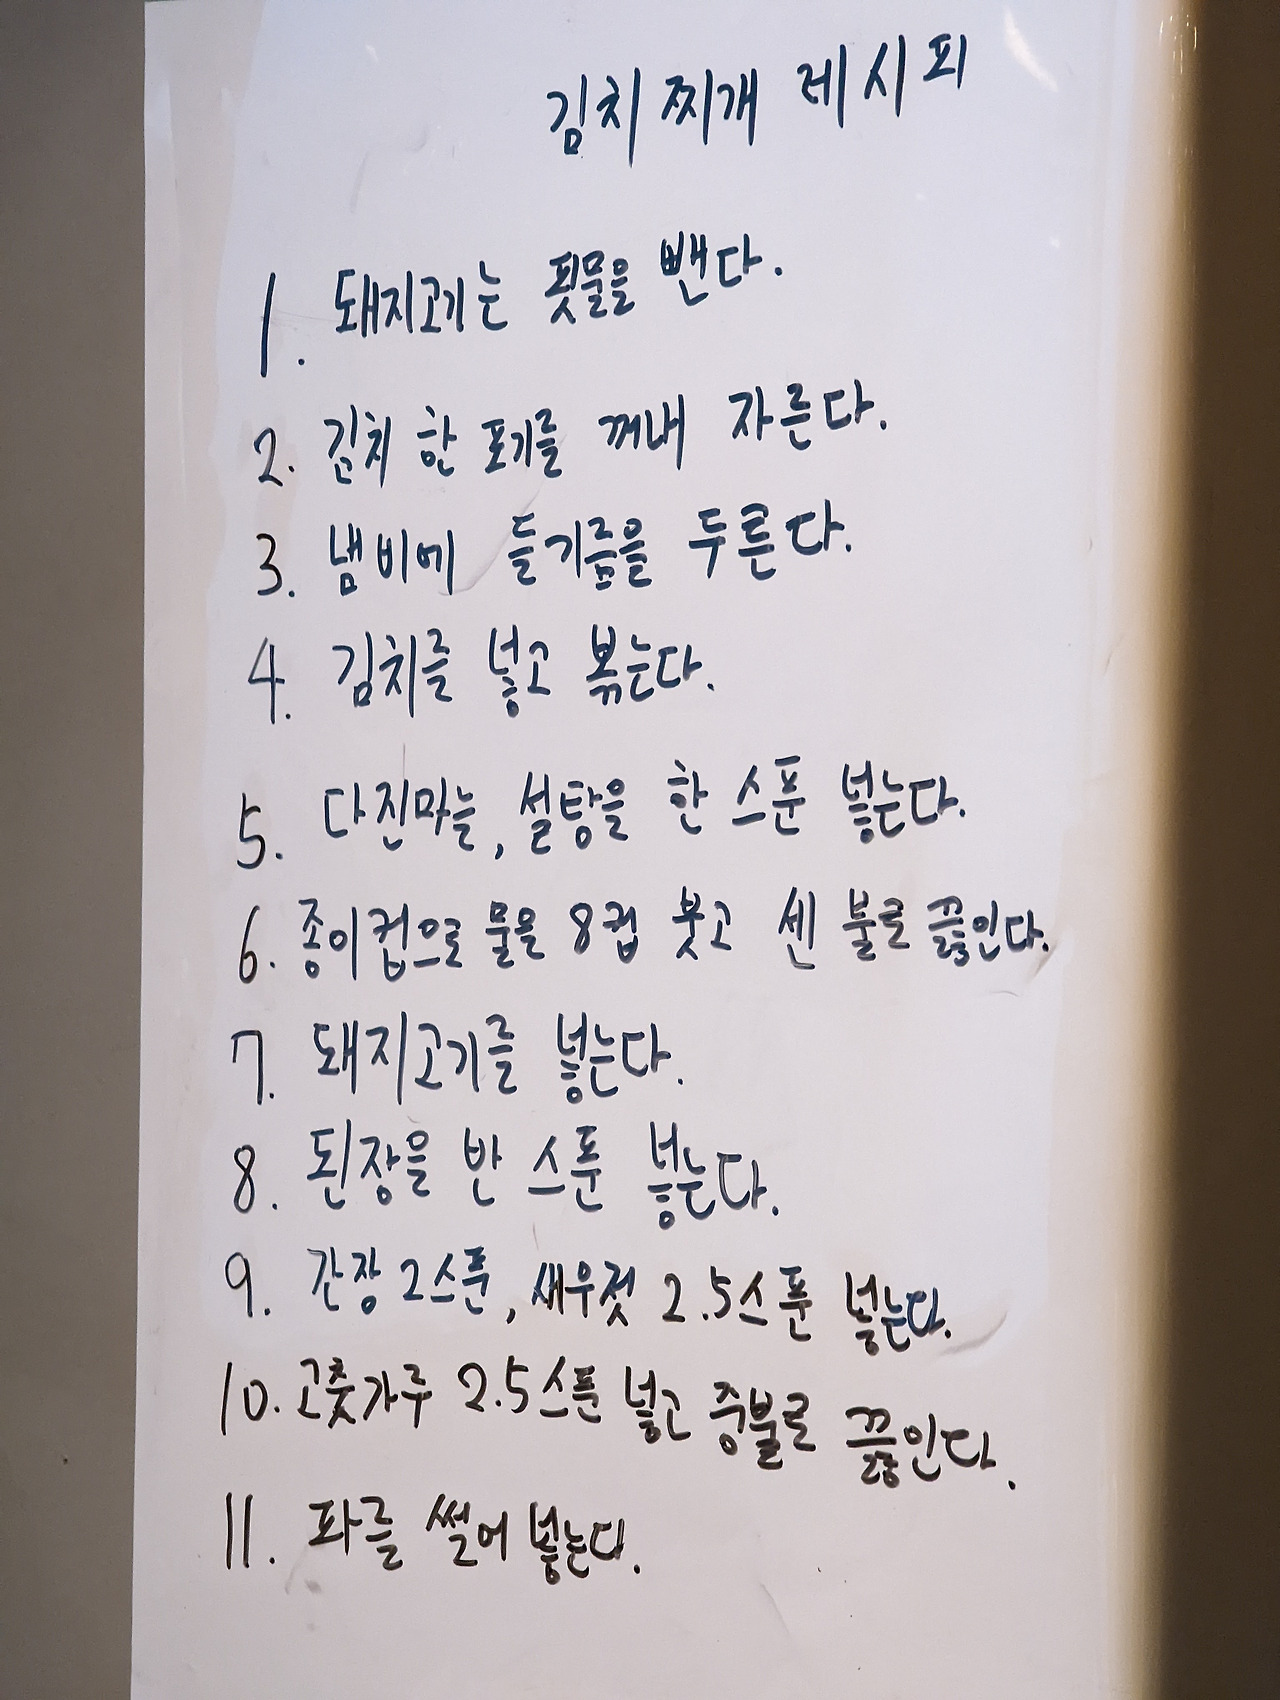 김치찌개 레시피
1. 돼지고기는 핏물을 뺀다.
2. 김치 한 포기를 꺼내 자른다.
3. 냄비에 들기름을 두른다.
4. 김치를 넣고 볶는다.
5. 다진마늘, 설탕을 한 스푼 넣는다.
6. 종이컵으로 물을 8컵 붓고 센 불로 끓인다.
7. 돼지고기를 넣는다.
8. 된장을 반 스푼 넣는다.
9. 간장 2스푼, 새우젓 2.5스푼 넣는다.
10. 고춧가루 2.5스푼 넣고 중불로 끓인다.
11. 파를 썰어 넣는다.